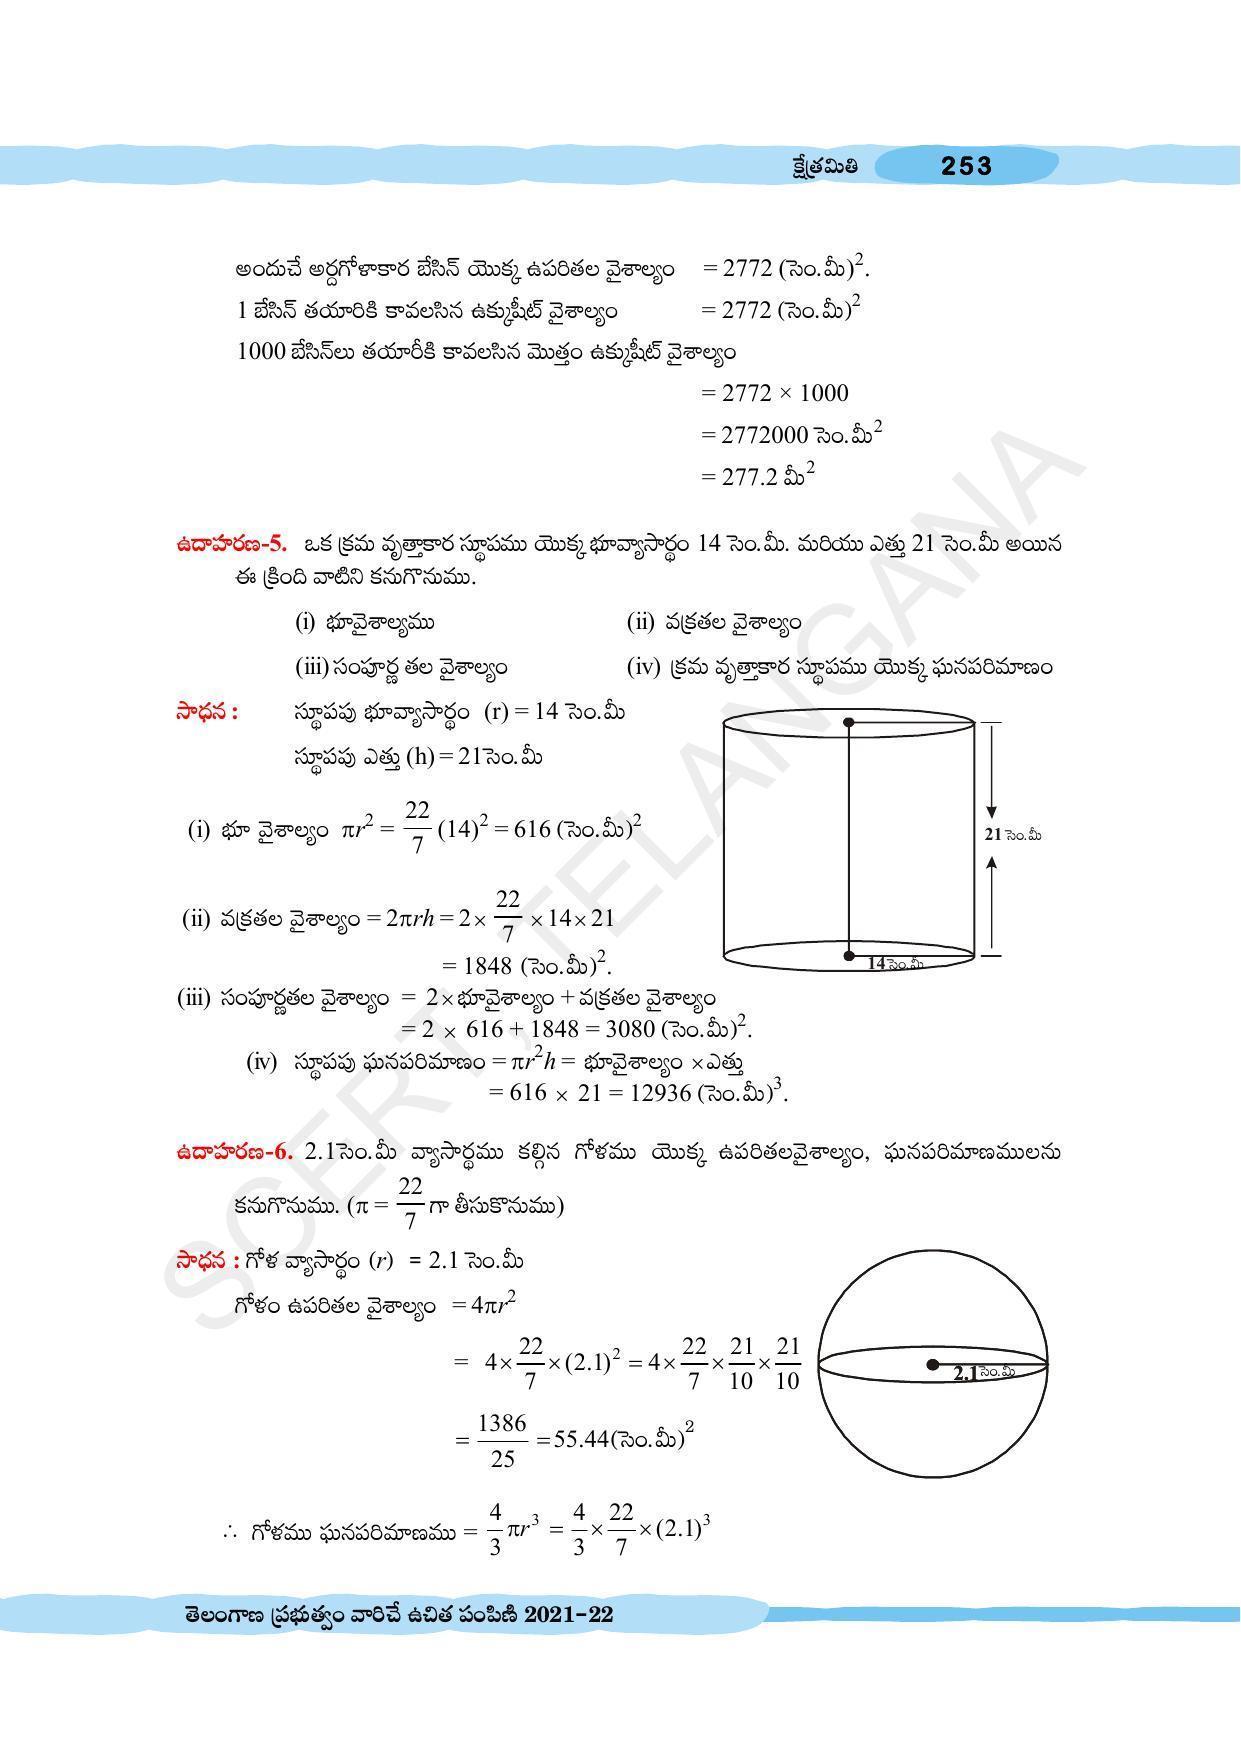 క్షేత్రమితి 253
అందుచే అర్దగోళాకార బేసిన్ యొక్క ఉపరితల వైశాల్యం = 2772 (సెం.మీ)².
1 బేసిన్ తయారికి కావలసిన ఉక్కుషీట్ వైశాల్యం = 2772 (సెం.మీ)²
1000 బేసిన్‌లు తయారీకి కావలసిన మొత్తం ఉక్కుషీట్ వైశాల్యం
= 2772 × 1000
= 2772000 సెం.మీ²
= 277.2 మీ²
ఉదాహరణ-5. ఒక క్రమ వృత్తాకార స్థూపము యొక్క భూవ్యాసార్థం 14 సెం.మీ. మరియు ఎత్తు 21 సెం.మీ అయిన
ఈ క్రింది వాటిని కనుగొనుము.
(i) భూవైశాల్యము (ii) వక్రతల వైశాల్యం
(iii) సంపూర్ణ తల వైశాల్యం (iv) క్రమ వృత్తాకార స్థూపము యొక్క ఘనపరిమాణం
సాధన : స్థూపపు భూవ్యాసార్థం (r) = 14 సెం.మీ
స్థూపపు ఎత్తు (h) = 21సెం.మీ
(i) భూ వైశాల్యం πr² = 22/7 (14)² = 616 (సెం.మీ)²
21 సెం.మీ
(ii) వక్రతల వైశాల్యం = 2πrh = 2 × 22/7 × 14 × 21
= 1848 (సెం.మీ)².
14 సెం.మీ
(iii) సంపూర్ణతల వైశాల్యం = 2 × భూవైశాల్యం + వక్రతల వైశాల్యం
= 2 × 616 + 1848 = 3080 (సెం.మీ)².
(iv) స్థూపపు ఘనపరిమాణం = πr²h = భూవైశాల్యం × ఎత్తు
= 616 × 21 = 12936 (సెం.మీ)³.
ఉదాహరణ-6. 2.1సెం.మీ వ్యాసార్థము కల్గిన గోళము యొక్క ఉపరితలవైశాల్యం, ఘనపరిమాణములను
కనుగొనుము. (π = 22/7 గా తీసుకొనుము)
సాధన : గోళ వ్యాసార్థం (r) = 2.1 సెం.మీ
గోళం ఉపరితల వైశాల్యం = 4πr²
= 4 × 22/7 × (2.1)² = 4 × 22/7 × 21/10 × 21/10
2.1సెం.మీ
= 1386/25 = 55.44(సెం.మీ)²
∴ గోళము ఘనపరిమాణము = 4/3 πr³ = 4/3 × 22/7 × (2.1)³
తెలంగాణ ప్రభుత్వం వారిచే ఉచిత పంపిణి 2021-22
SCERT, TELANGANA